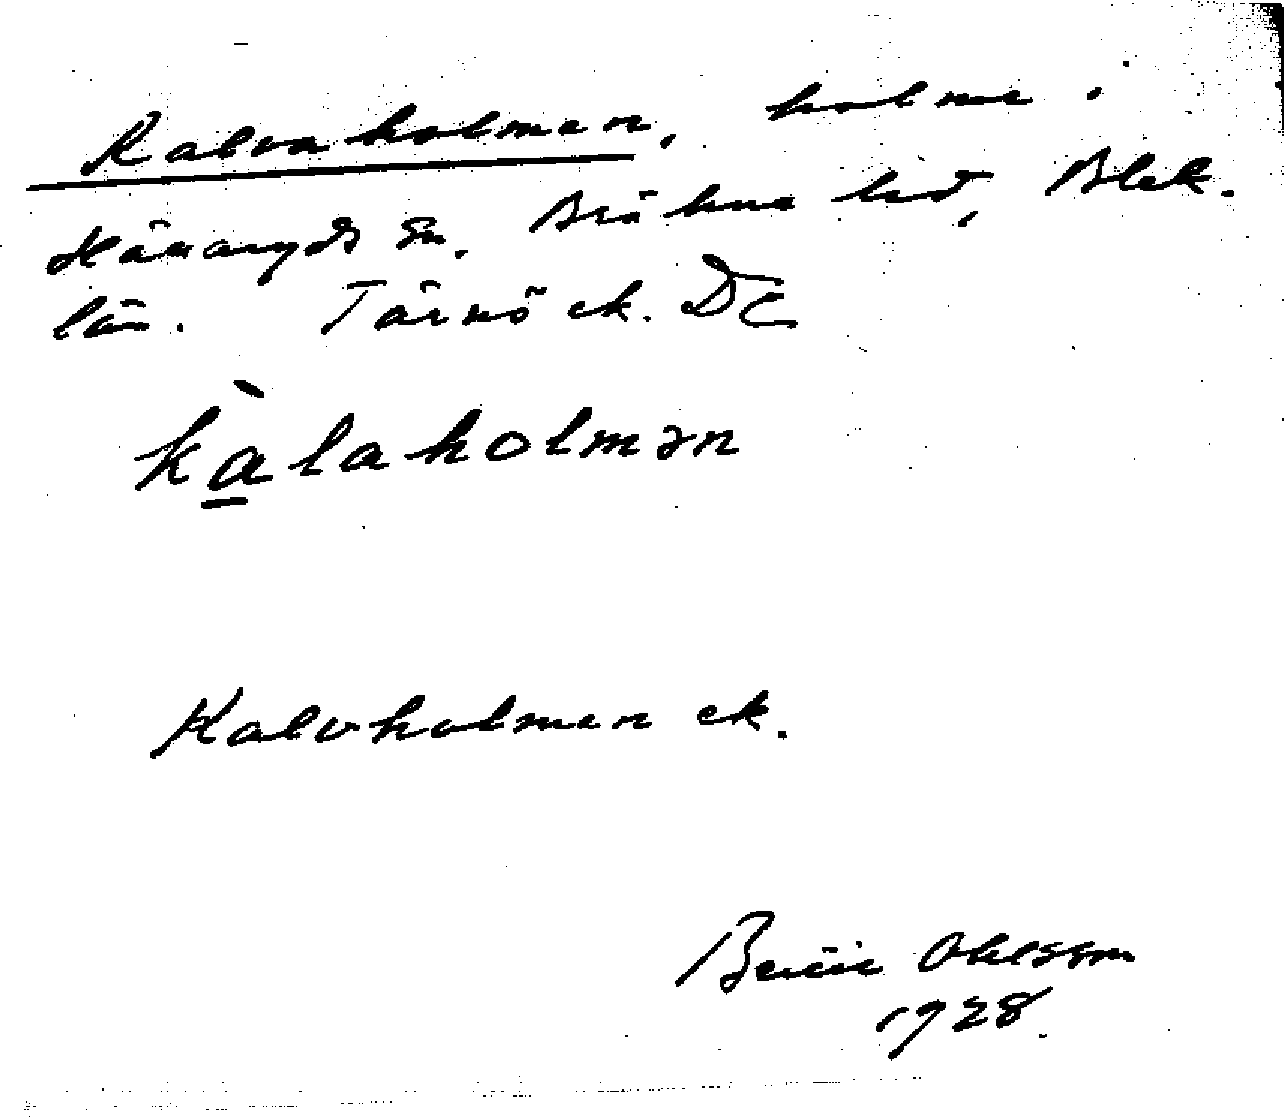 Kalvaholmen, holme i
Hällaryds sn, Bräkne hd, Blek.
län. Tärnö ek. DC
kàlaholmən
Kalvholmen ek.
Bertil Ohlsson
1928.